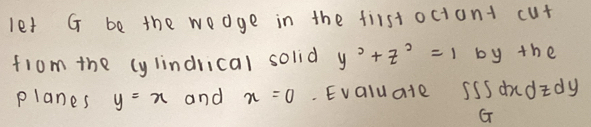 let G be the wedge in the first octant cut
from the cylindrical solid y² + z² = 1 by the
planes y = x and x = 0 . Evaluate ∫∫∫ dxdzdy
G